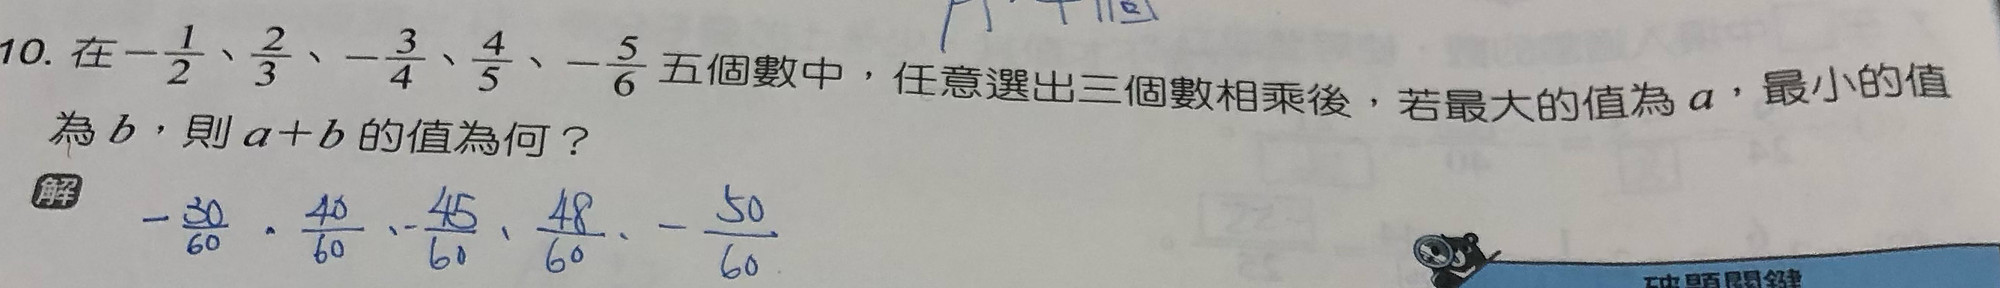 10. 在 -1/2、2/3、-3/4、4/5、-5/6 五個數中，任意選出三個數相乘後，若最大的值為 a，最小的值
為 b，則 a＋b 的值為何？
解
-30/60、40/60、-45/60、48/60、-50/60
破題關鍵